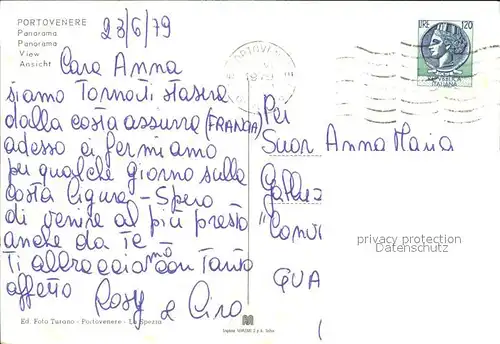 PORTOVENERE
Panorama
Panorama
View
Ansicht
23/6/79
LIRE 120
ITALIANA
PORTOVENE
1979
Cara Anna
siamo Tornati stasera
dalla costa azzurra (FRANCIA)
adesso ci fermiamo
per qualche giorno sulla
costa ligure - Spero
di venire al più presto
anche da Te -
Ti abbracciamo con Tanto
affetto Rosy e Ciro
Per
Suor Anna Maria
"Conv
privacy protection
Datenschutz
GUA
(
Ed. Foto Turano - Portovenere - La Spezia